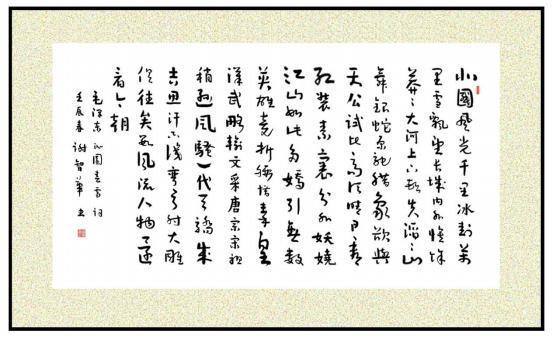 北國風光千里冰封萬
里雪飄望長城内外惟餘
莽々大河上下頓失滔々山
舞銀蛇原馳蠟象欲與
天公試比高須晴日看
紅裝素裹分外妖嬈
江山如此多嬌引無數
英雄競折腰惜秦皇
漢武略輸文采唐宗宋祖
稍遜風騷一代天驕成
吉思汗只識彎弓射大雕
俱往矣數風流人物還
看今朝
毛澤東沁園春雪詞
壬辰春謝智華書